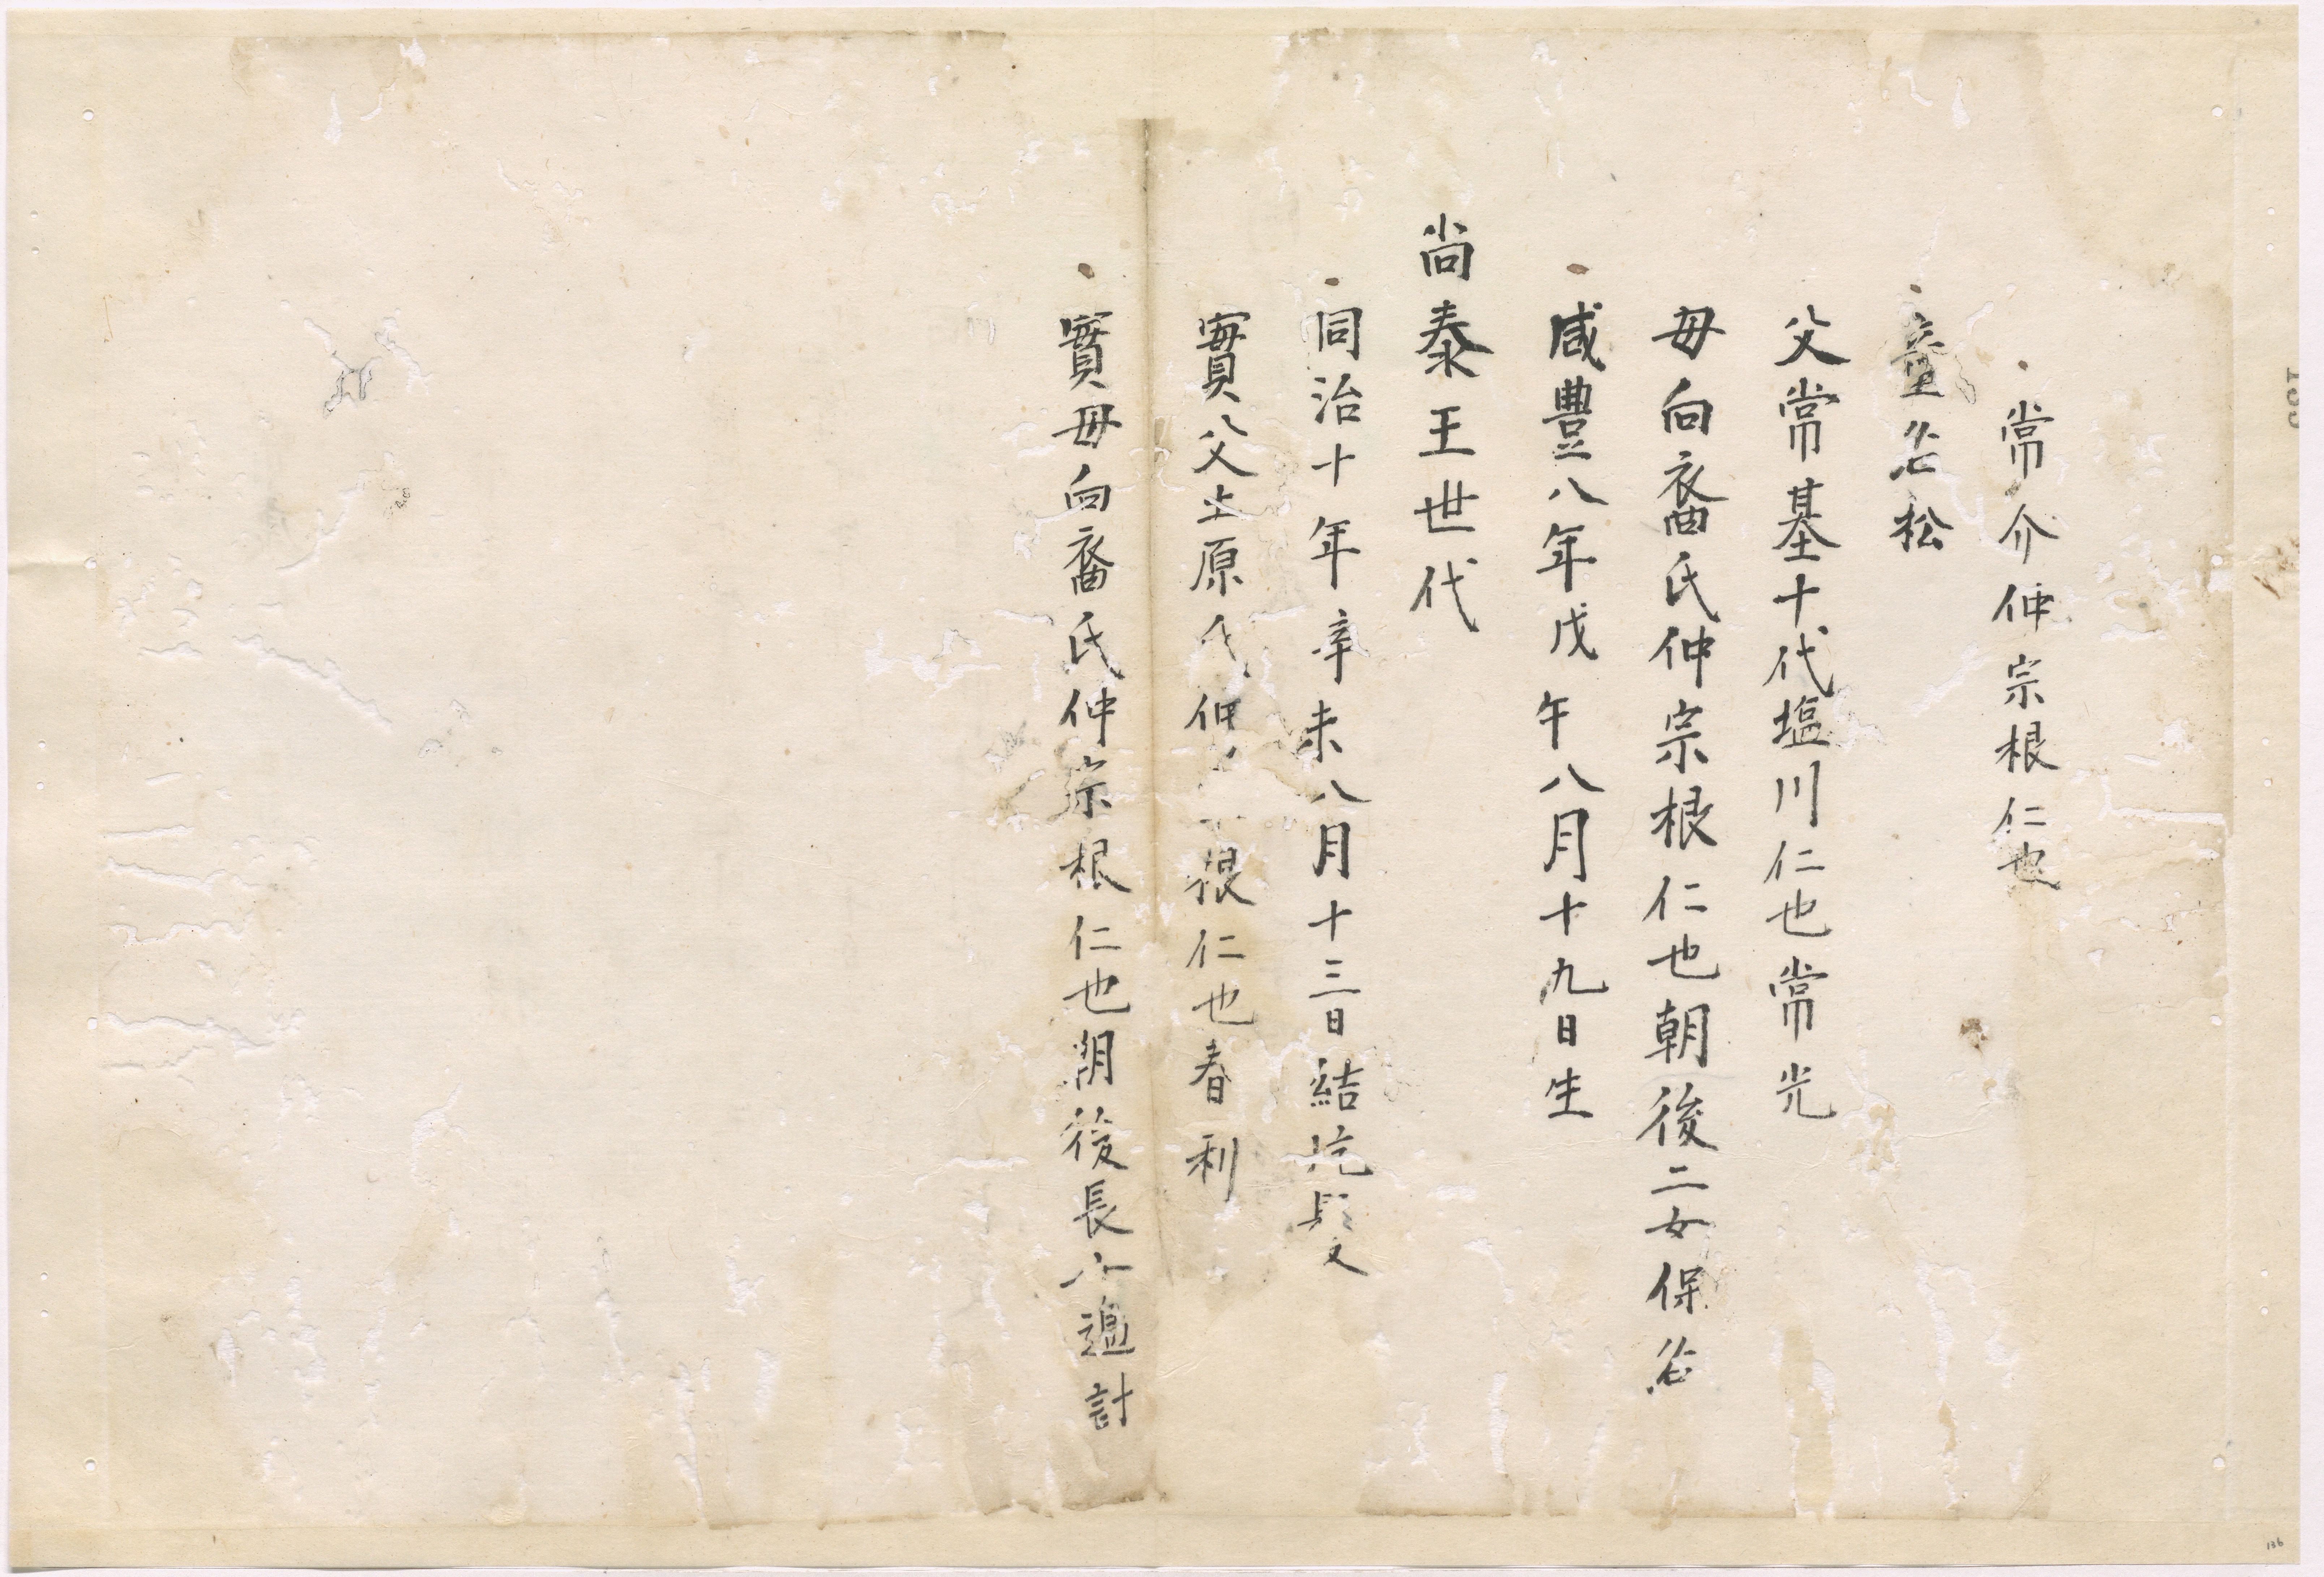 常介仲宗根仁也
童名松
父常基十代塩川仁也常光
母向裔氏仲宗根仁也朝後二女保名
咸豐八年戊午八月十九日生
尚泰王世代
同治十年辛未八月十三日結髮
實父土原氏仲根仁也春利
實母向裔氏仲宗根仁也朝後長
136